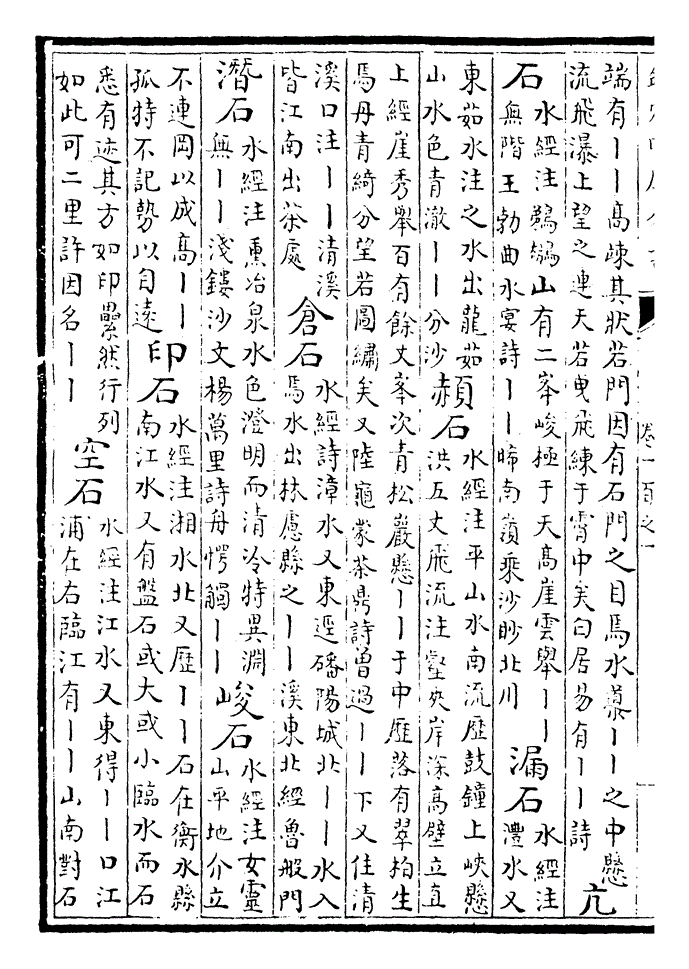 卷一百之一
端有丨丨高竦其狀若門因有石門之目焉水㬥丨丨之中懸
流飛瀑上望之連天若曳飛練于霄中矣白居易有丨丨詩
亢
石
水經注鵜鶘山有二峯峻極于天高崖雲舉丨丨
無階王勃曲水宴詩丨丨晞南嶺乘沙眇北川
漏石
水經注
澧水又
東茹水注之水出龍茹
山水色青澈丨丨分沙
赬石
水經注平山水南流歷鼓鐘上峽懸
洪五丈飛流注壑夾岸深高壁立直
上經崖秀舉百有餘丈峯次青松巖懸丨丨于中歷落有翠柏生
焉丹青綺分望若圖繡矣又陸龜蒙茶鼎詩曾過丨丨下又住清
溪口注丨丨清溪
皆江南出茶處
倉石
水經詩漳水又東逕磻陽城北丨丨水入
焉水出林慮縣之丨丨溪東北經魯般門
潛石
水經注熏冶泉水色澄明而清冷特異淵
無丨丨淺鏤沙文楊萬里詩舟愕觸丨丨
峻石
水經注女靈
山平地介立
不連岡以成高丨丨
孤特不記勢以自遠
印石
水經注湘水北又歷丨丨石在衡水縣
南江水又有盤石或大或小臨水而石
悉有迹其方如印纍然行列
如此可二里許因名丨丨
空石
水經注江水又東得丨丨口江
浦在右臨江有丨丨山南對石